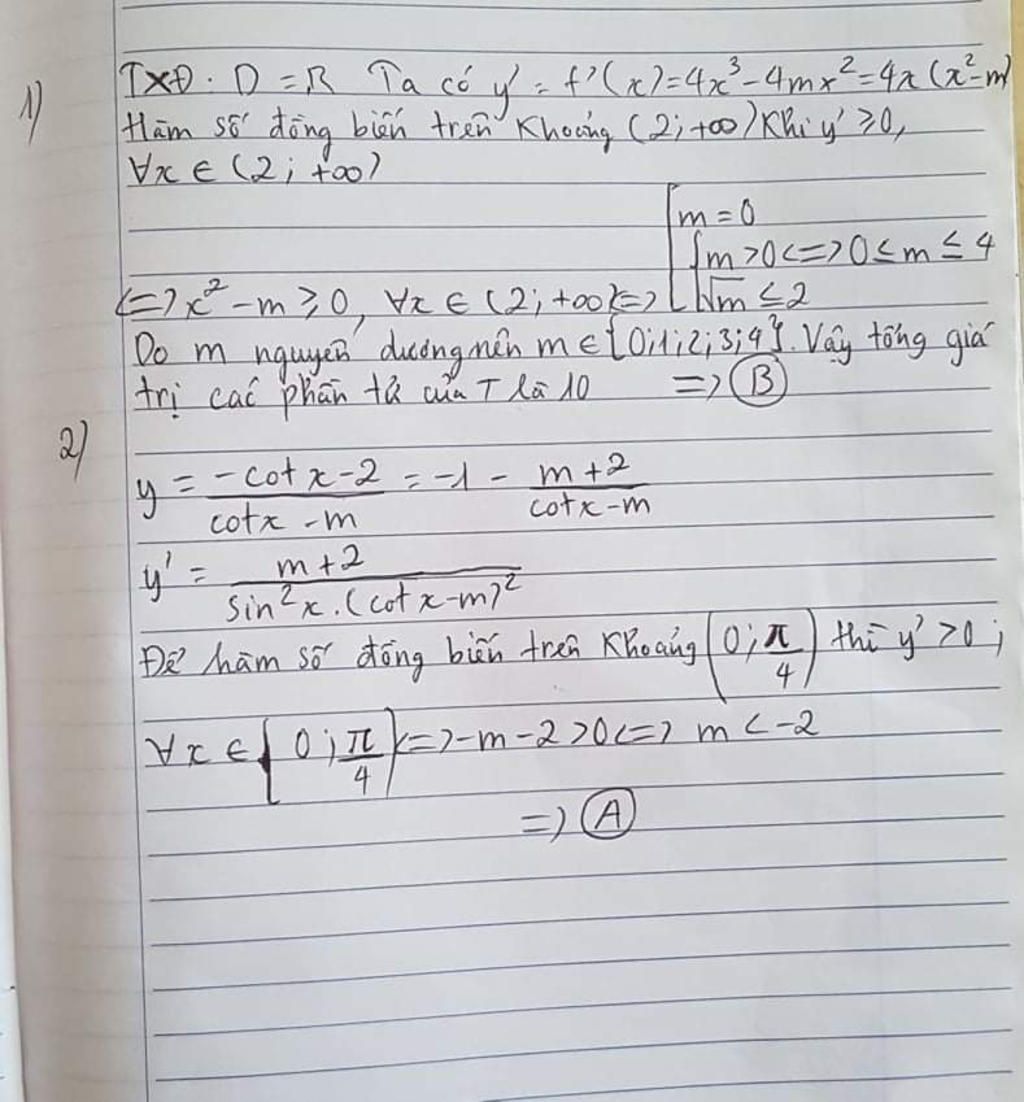 1) TXĐ: D = R Ta có y' = f'(x) = 4x³ - 4mx² = 4x(x² - m)
Hàm số đồng biến trên khoảng (2; +∞) khi y' ≥ 0,
∀x ∈ (2; +∞)
[ m = 0
{ m > 0 <=> 0 ≤ m ≤ 4
<=> x² - m ≥ 0, ∀x ∈ (2; +∞) <=> √m ≤ 2
Do m nguyên dương nên m ∈ {0;1;2;3;4}. Vậy tổng giá
trị các phần tử của T là 10 => B
2)
y = (-cot x - 2)/(cot x - m) = -1 - (m + 2)/(cot x - m)
y' = (m + 2)/(sin²x.(cot x - m)²)
Để hàm số đồng biến trên khoảng (0; π/4) thì y' > 0;
∀x ∈ (0; π/4) <=> -m - 2 > 0 <=> m < -2
=> A